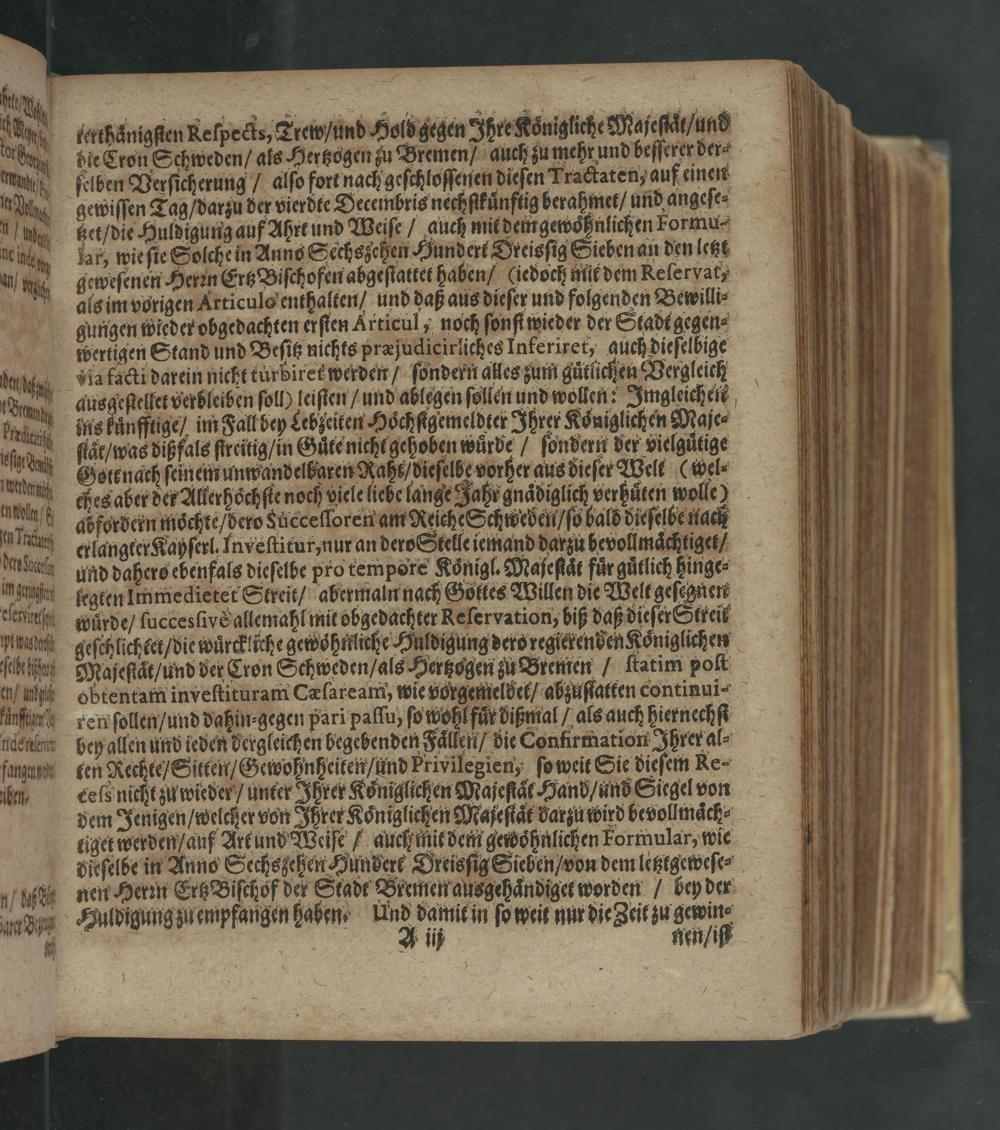 terthänigsten Respects, Trew/und Hold gegen Ihre Königliche Majestät/und
die Cron Schweden/ als Hertzogen zu Bremen/ auch zu mehr und besserer der-
selben Versicherung / also fort nach geschlossenen diesen Tractaten, auf einen
gewissen Tag/darzu der vierdte Decembris nechstkünftig berahmet/ und angese-
tzet/die Huldigung auf Ahrt und Weise / auch mit dem gewöhnlichen Formu-
lar, wie sie Solche in Anno Sechszehen Hundert Dreissig Sieben an den letzt
gewesenen Herrn Ertz Bischofen abgestattet haben/ (iedoch mit dem Reservat,
als im vorigen Articulo enthalten/ und daß aus dieser und folgenden Bewilli-
gungen wieder obgedachten ersten Articul, noch sonst wieder der Stadt gegen-
wertigen Stand und Besitz nichts præjudicirliches Inferiret, auch dieselbige
via facti darein nicht turbiret werden/ sondern alles zum gütlichen Vergleich
ausgestellet verbleiben soll) leisten / und ablegen sollen und wollen: Imgleichen
ins künfftige/ im Fall bey Lebzeiten Höchstgemeldter Ihrer Königlichen Maje-
stät/was dißfals streitig/in Güte nicht gehoben würde / sondern der vielgütige
Gott nach seinem unwandelbaren Raht/dieselbe vorher aus dieser Welt (wel-
ches aber der Allerhöchste noch viele liebe lange Jahr gnädiglich verhüten wolle)
abfordern möchte/dero Successoren am Reiche Schweden/so bald dieselbe nach
erlangter Kayserl. Investitur, nur an dero Stelle iemand darzu bevollmächtiget/
und dahero ebenfals dieselbe pro tempore Königl. Majestät für gütlich hinge-
legten Immedietet Streit/ abermaln nach Gottes Willen die Welt gesegnen
würde/ successivè allemahl mit obgedachter Reservation, biß daß dieser Streit
geschlichtet/die würckliche gewöhnliche Huldigung dero regierenden Königlichen
Majestät/und der Cron Schweden/als Hertzogen zu Bremen / statim post
obtentam investituram Cæsaream, wie vorgemeldet/ abzustatten continui-
ren sollen/und dahin-gegen pari passu, so wohl für dißmal / als auch hiernechst
bey allen und ieden dergleichen begebenden Fällen/ die Confirmation Ihrer al-
ten Rechte/Sitten/Gewohnheiten/und Privilegien, so weit Sie diesem Re-
cess nicht zu wieder/ unter Ihrer Königlichen Majestät Hand/und Siegel von
dem Jenigen/welcher von Ihrer Königlichen Majestät darzu wird bevollmäch-
tiget werden/auf Art und Weise / auch mit dem gewöhnlichen Formular, wie
dieselbe in Anno Sechszehen Hundert Dreissig Sieben/von dem letztgewese-
nen Herrn Ertz Bischof der Stadt Bremen ausgehändiget worden / bey der
Huldigung zu empfangen haben. Und damit in so weit nur die Zeit zu gewin-
A iij nen/ist